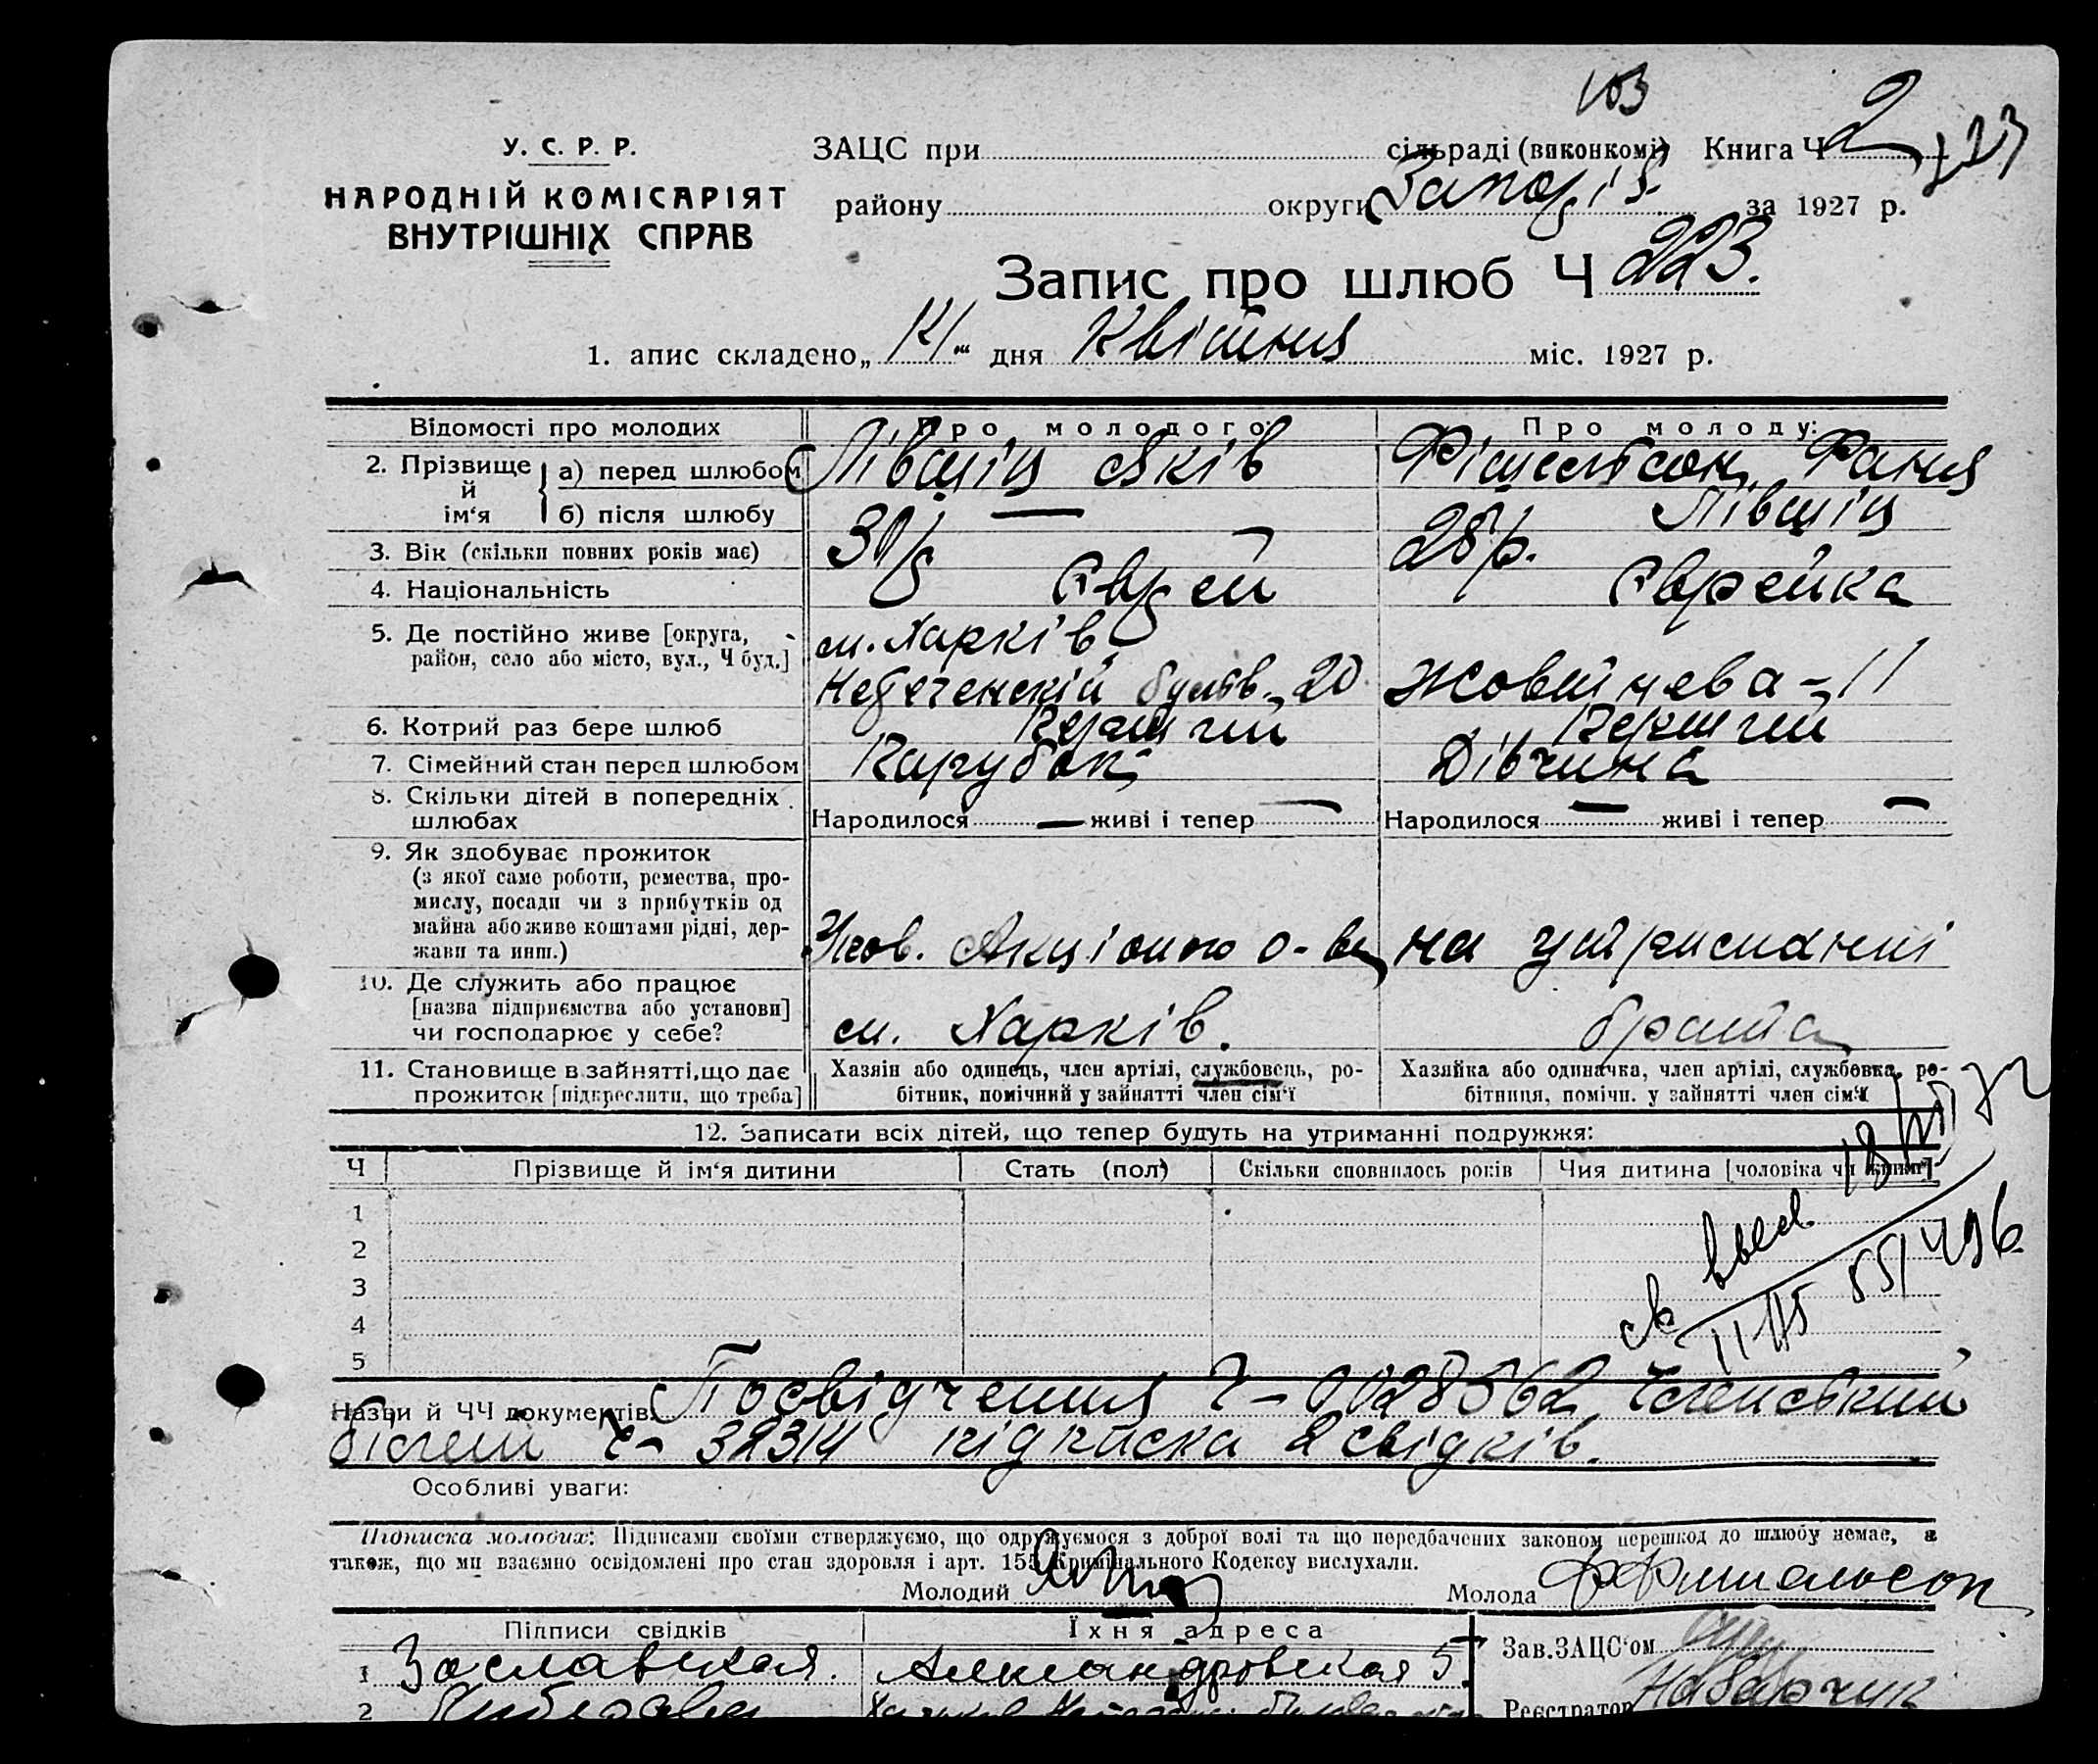 103
У. С. Р. Р.
НАРОДНІЙ КОМІСАРІЯТ
ВНУТРІШНІХ СПРАВ
ЗАЦС при сільраді (виконкомі) Книга Ч 2
району округи Запоріз. за 1927 р.
Запис про шлюб Ч 223.
1. апис складено „ “ дня Квітня міс. 1927 р.
Відомості про молодих
Про молодого:
Про молоду:
2. Прізвище й ім‘я
а) перед шлюбом
Лівшіц Яків
Фішельсон Фаня
б) після шлюбу
—
Лівшіц
3. Вік (скільки повних років має)
28 р.
4. Національність
Єврей
Єврейка
5. Де постійно живе [округа,
район, село або місто, вул., Ч буд.]
м. Харків
Нетеченскій бульв. 20
Жовтнева – 11
6. Котрий раз бере шлюб
Перший
Перший
7. Сімейний стан перед шлюбом
Парубок
Дівчина
8. Скільки дітей в попередніх
шлюбах
Народилося — живі і тепер —
Народилося — живі і тепер —
9. Як здобуває прожиток
(з якої саме роботи, ремества, про-
мислу, посади чи з прибутків од
майна або живе коштами рідні, дер-
жави та инш.)
о-ва
на утриманні
10. Де служить або працює
[назва підприємства або установи]
чи господарює у себе?
м. Харків.
брата
11. Становище в зайнятті, що дає
прожиток [підкреслити, що треба]
Хазяін або одинець, член артілі, службовець, ро-
бітник, помічний у зайнятті член сім‘ї
Хазяйка або одиначка, член артілі, службовка, ро-
бітниця, помічн. у зайнятті член сім‘ї
12. Записати всіх дітей, що тепер будуть на утриманні подружжя:
Ч
Прізвище й ім‘я дитини
Стать (пол)
Скільки сповнилось років
Чия дитина [чоловіка чи жінки]
1
2
3
4
5
Назви й ЧЧ документів: Посвідчення Ч – 0028562 Членський
білет Ч – 32314 підписка 2 свідків.
Особливі уваги:
Підписка молодих: Підписами своїми стверджуємо, що одружуємося з доброї волі та що передбачених законом перешкод до шлюбу немає, а
також, що ми взаємно освідомлені про стан здоровля і арт. 155 Кримінального Кодексу вислухали.
Молодий
Молода ФФишельсон
Підписи свідків
Їхня адреса
1 Заславская. Александровская 5
2
Зав. ЗАЦС‘ом
Реєстратор